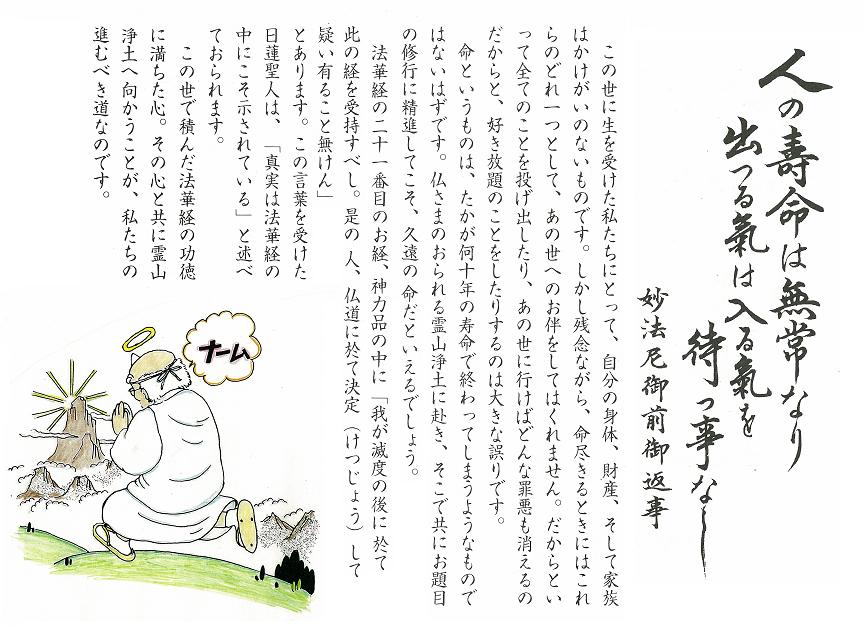 人の寿命は無常なり
出つる氣は入る氣を
待つ事なし
妙法尼御前御返事
この世に生を受けた私たちにとって、自分の身体、財産、そして家族
はかけがいのないものです。しかし残念ながら、命尽きるときにはこれ
らのどれ一つとして、あの世へのお伴をしてはくれません。だからとい
って全てのことを投げ出したり、あの世に行けばどんな罪悪も消えるの
だからと、好き放題のことをしたりするのは大きな誤りです。
命というものは、たかが何十年の寿命で終わってしまうようなもので
はないはずです。仏さまのおられる霊山浄土に赴き、そこで共にお題目
の修行に精進してこそ、久遠の命だといえるでしょう。
法華経の二十一番目のお経、神力品の中に「我が滅度の後に於て
此の経を受持すべし。是の人、仏道に於て決定（けつじょう）して
疑い有ること無けん」
とあります。この言葉を受けた
日蓮聖人は、「真実は法華経の
中にこそ示されている」と述べ
ておられます。
この世で積んだ法華経の功徳
に満ちた心。その心と共に霊山
浄土へ向かうことが、私たちの
進むべき道なのです。
ナーム